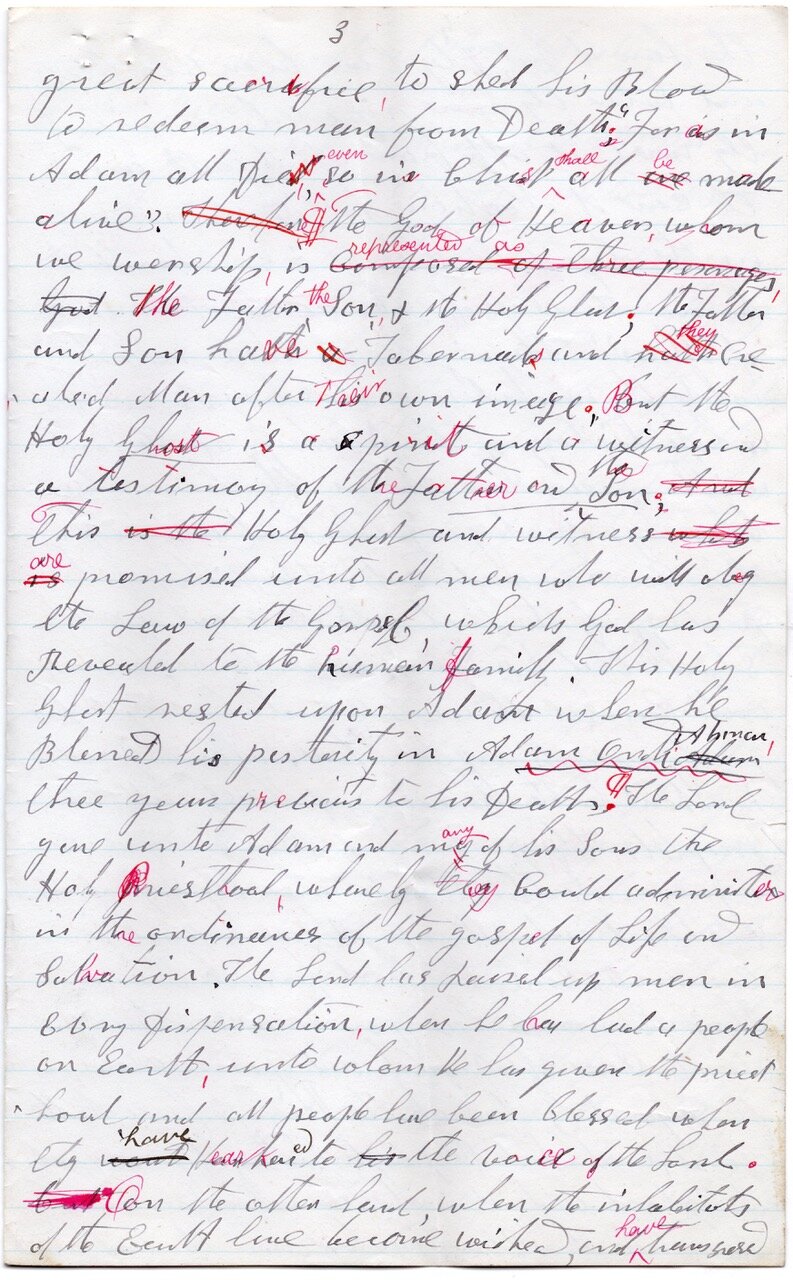 3
great sacrifice, to shed his Blood
to redeem man from Death; "For as in
Adam all Die, even so in Christ shall all are be made
alive". Therefore ¶ The God of Heaven, whom
we worship, is composed of three personages represented as
God The Father the Son, & the Holy Ghost; the Father
and Son have a Tabernacle and hath they Cre-
ated Man after Their own image. But the
Holy Ghost is a spirit and a witness and
a testimony of the Father and the Son; And
This is the Holy Ghost and witness which
is are promised unto all men who will obey
the Law of the Gospel, which God has
Revealed to the human family. This Holy
Ghost rested upon Adam when he
Blessed his posterity in Adam Ondi Adam Ahman,
three years previous to his Death. ¶ The Lord
gave unto Adam and many of his Sons the
Holy Priesthood, whereby they Could administer
in the ordinances of the gospel of Life and
Salvation. The Lord has raised up men in
evry Dispensation, when he has had a people
on Earth, unto whom He has given the priest
hood and all people have been blessed when
they would have Hearkened to his the voice of the Lord.
but On the other hand, when the inhabitants
of the Earth have become wicked, and have transgresd